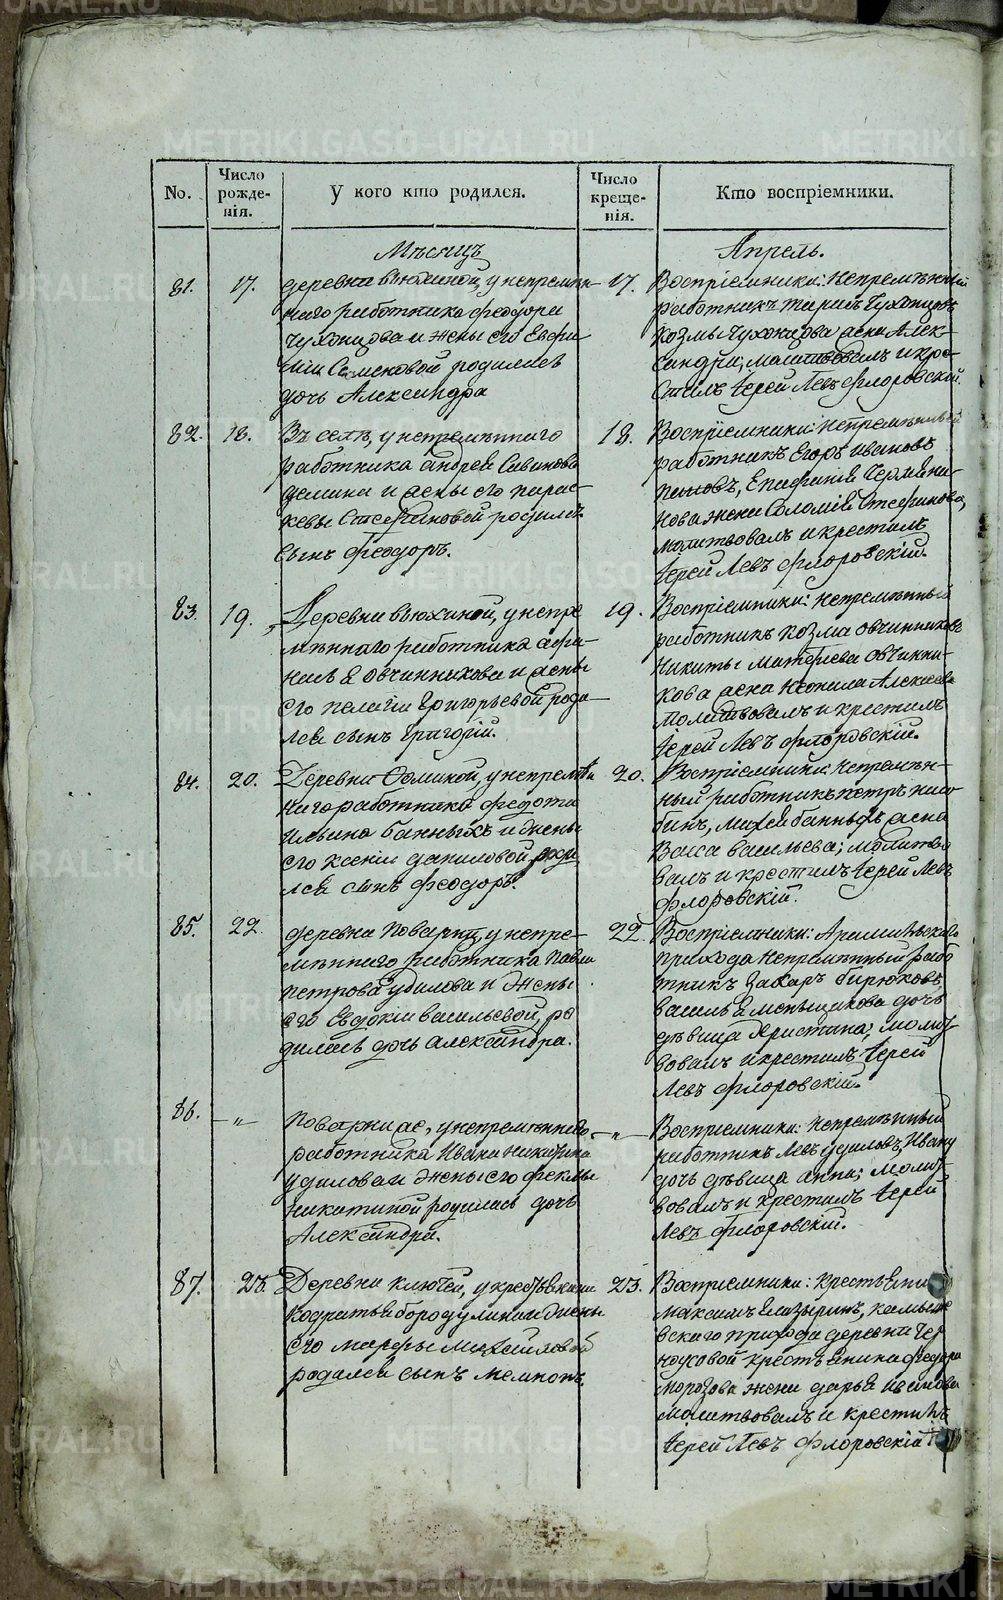 No.
Число рожде-нія.
У кого кто родился.
Число креще-нія.
Кто воспріемники.
Мѣсяцъ
Апрель.
81.
17.
деревни Вьюхиной, у непремѣн-
наго работника Феодора
Чухонцова и жены его Евфи-
міи Семеновой родилась
дочь Александра
17.
Воспріемники: Непремѣнный
работникъ
Козмы Чухонцова жена Алек-
сандра; молитвовалъ и кре-
стилъ Іерей Левъ Флоровской.
82.
18.
Въ селѣ, у непремѣннаго
работника Андрея Савинова
Демина и жены его Парас-
кевы Стефановой родился
сынъ Феодоръ.
18.
Воспріемники: Непремѣнный
работникъ Егоръ Ивановъ
Пановъ, Епифанія
жена Соломія Стефанова,
молитвовалъ и крестилъ
Іерей Левъ Флоровскій.
83
19.
Деревни Вьюхиной, у непре
мѣннаго работника Афа-
насья Овчинникова и жены
его Пелагіи Григорьевой роди-
лся сынъ Григорій.
19.
Воспріемники: Непремѣнный
работникъ Козма Овчинниковъ
Никиты Матфеева Овчинни-
кова жена Неонила Алексеева
молитвовалъ и крестилъ
Іерей Левъ Флоровскій.
84.
20.
Деревни, у непремѣн
наго работника Федота
Ильина Банныхъ и жены
его Ксеніи Даниловой роди
лся сынъ Феодоръ.
20.
Воспріемники: Непремѣн-
ный работникъ Петръ
Банныхъ жена
Васса Васильева; молитво
валъ и крестилъ Іерей Левъ
Флоровскій.
85.
22
деревни Поварни, у непре-
мѣннаго работника Павла
Петрова Удилова и жены
его Евдокіи Васильевой, ро
дилась дочь Александра.
22
Воспріемники: Арамильскаго
прихода Непремѣнный рабо
тникъ Захаръ Бирюковъ,
Василья Меньщикова дочь
дѣвица Христина; молит
вовалъ и крестилъ Іерей
Левъ Флоровскій.
86.
— " —
Поварни же, у непремѣннаго
работника Ивана Никитина
Удилова и жены его Феклы
Никитиной родилась дочь
Александра.
— " —
Воспріемники: Непремѣнный
работникъ Левъ Удиловъ, Ивана
дочь дѣвица Анна; молит
вовалъ и крестилъ Іерей
Левъ Флоровскій.
87.
23.
Деревни Ключей, у крестьянина
Кодратья Бородулина и жены
его Марфы Михайловой
родился сынъ Мемнонъ.
23.
Воспріемники: крестьянинъ
Максимъ Елазыринъ,
вскаго прихода деревни Чер
ноусовой крестьянина Федора
Морозова жена Дарья Иванова
молитвовалъ и крестилъ
Іерей Левъ Флоровскій
METRIKI.GASO-URAL.RU